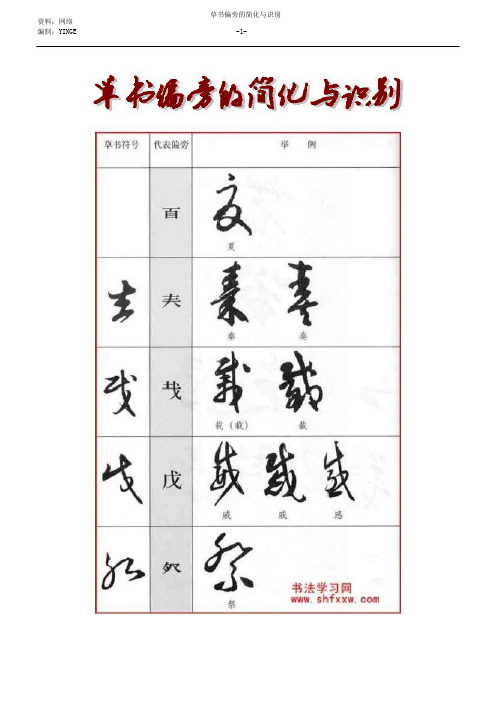 草书偏旁的简化与识别
资料：网络
编制：YINGE -1-
草书偏旁的简化与识别
草书符号 代表偏旁 举 例
百 夏
夏
𡗗 秦 奏
秦 奏
𢦏 载 截
载（載） 截
戊 威 戚 感
威 戚 感
祭
祭
书法学习网
www.shfxxw.com